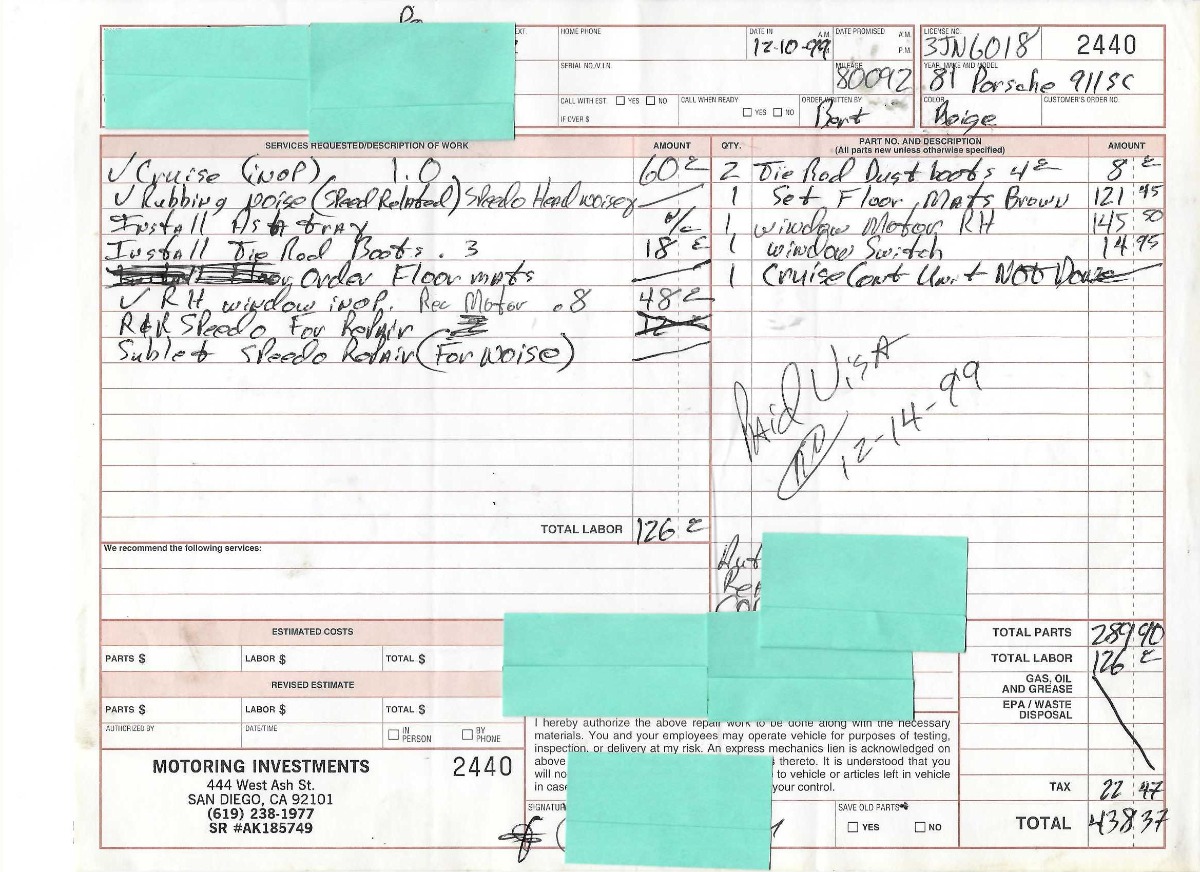 HOME PHONE
DATE IN A.M. 12-10-99
DATE PROMISED A.M. P.M.
LICENSE NO. 3JN6018
2440
SERIAL NO./V.I.N.
MILEAGE 80092
YEAR, MAKE AND MODEL 81 Porsche 911SC
CALL WITH EST. YES NO
IF OVER $
CALL WHEN READY YES NO
ORDER WRITTEN BY Bart
COLOR Baige
CUSTOMER'S ORDER NO.
SERVICES REQUESTED/DESCRIPTION OF WORK AMOUNT
✓ Cruise (inop) 1.0 60
✓ Rubbing noise (Speed Related) Speedo Head noisey
Install Ash tray n/c
Install Tie Rod Boots .3 18
Order Floor mats
✓ RH window inop. Rec Motor .8 48
R&R Speedo For Repair
Sublet Speedo Repair (For Noise)
TOTAL LABOR 126
QTY. PART NO. AND DESCRIPTION AMOUNT
(All parts new unless otherwise specified)
2 Tie Rod Dust boots 4 8
1 Set Floor Mats Brown 121 95
1 window Motor RH 145 50
1 window Switch 14 95
1 Cruise Cont Unit NOT Done
Paid Visa
12-14-99
We recommend the following services:
ESTIMATED COSTS
PARTS $ LABOR $ TOTAL $
REVISED ESTIMATE
PARTS $ LABOR $ TOTAL $
AUTHORIZED BY DATE/TIME IN PERSON BY PHONE
MOTORING INVESTMENTS
444 West Ash St.
SAN DIEGO, CA 92101
(619) 238-1977
SR #AK185749
2440
I hereby authorize the above repair work to be done along with the necessary
materials. You and your employees may operate vehicle for purposes of testing,
inspection, or delivery at my risk. An express mechanics lien is acknowledged on
above thereto. It is understood that you
will no to vehicle or articles left in vehicle
in case your control.
SIGNATUR
SAVE OLD PARTS
YES NO
TOTAL PARTS 289 90
TOTAL LABOR 126
GAS, OIL
AND GREASE
EPA / WASTE
DISPOSAL
TAX 22 47
TOTAL 438 37